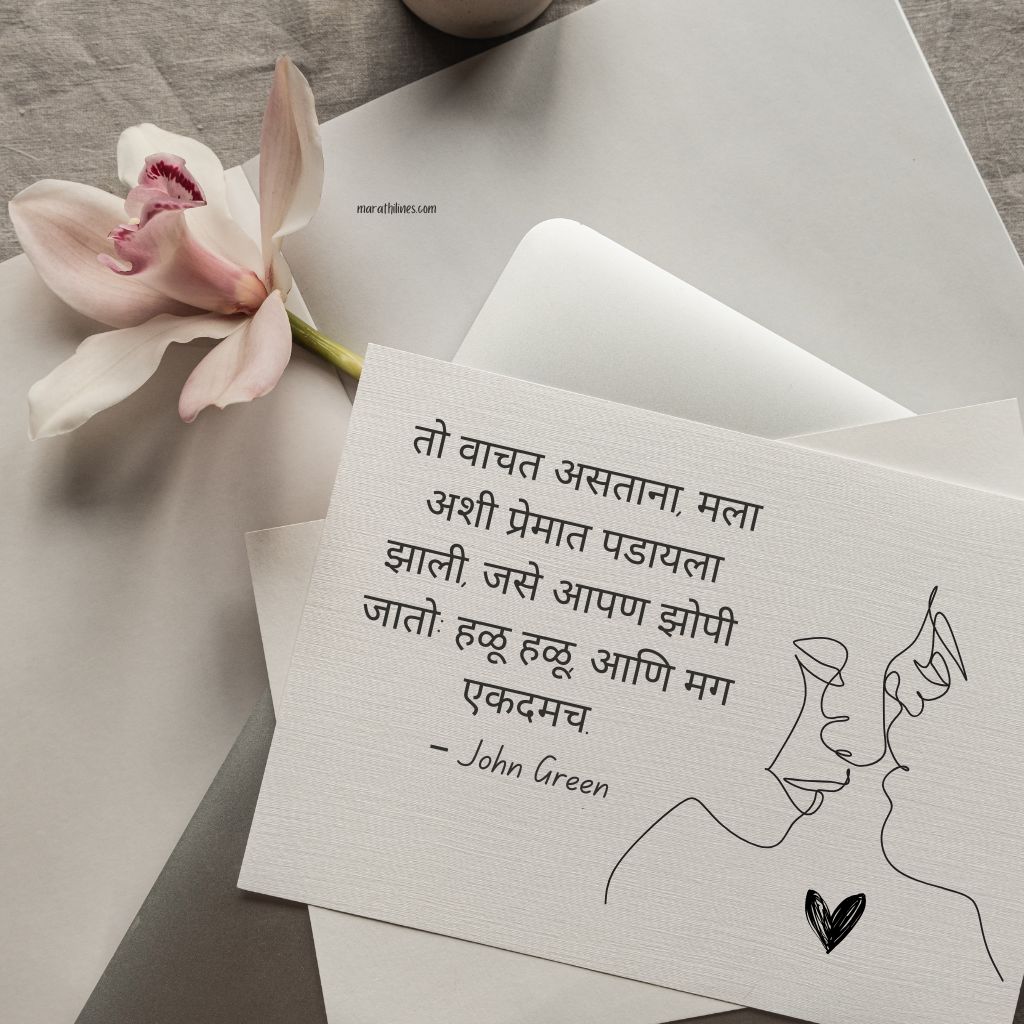 marathilines.com
तो वाचत असताना, मला
अशी प्रेमात पडायला
झाली, जसे आपण झोपी
जातो: हळू हळू, आणि मग
एकदमच.
– John Green